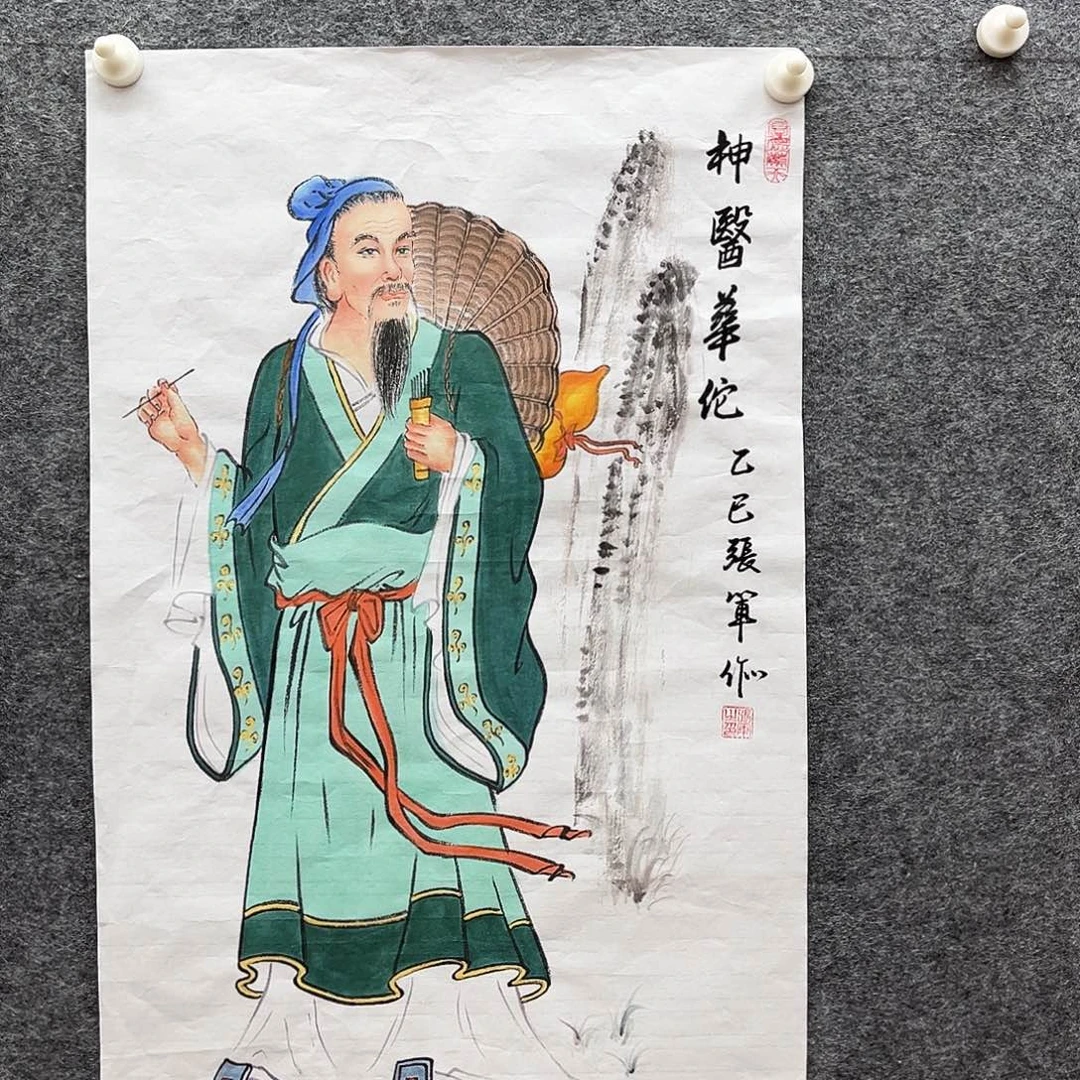 神醫華佗乙巳張軍作